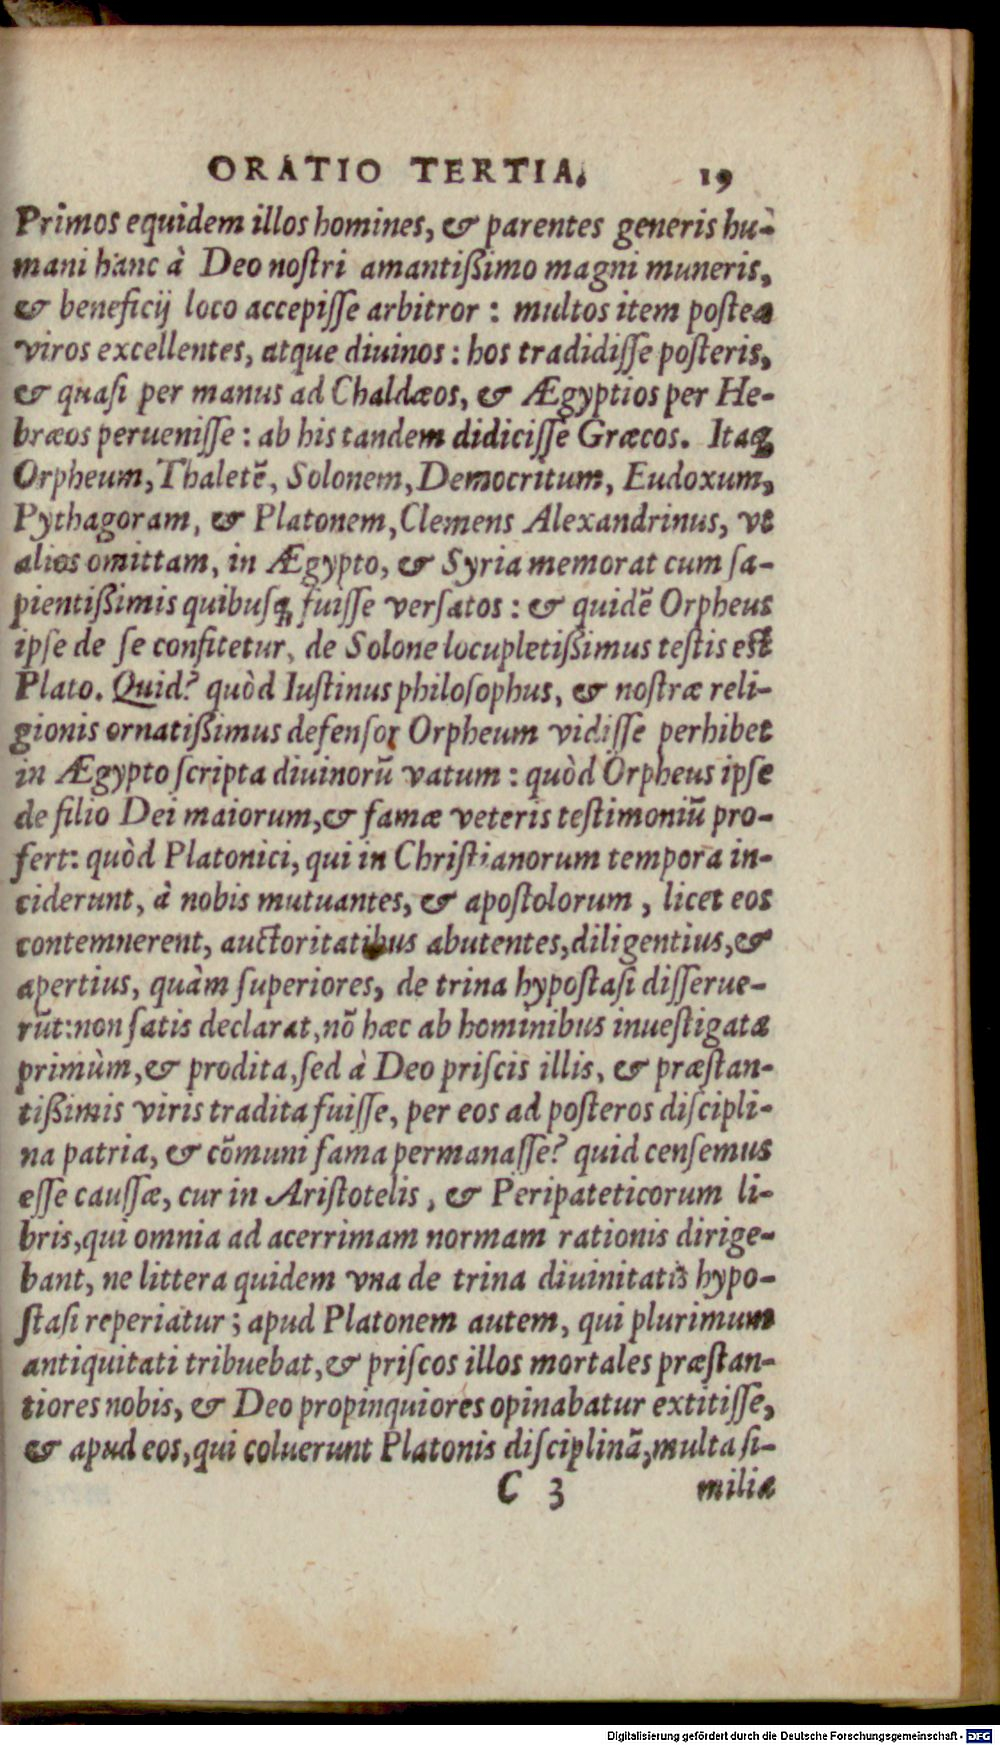 ORATIO TERTIA. 19
Primos equidem illos homines, & parentes generis hu-
mani hanc à Deo nostri amantißimo magni muneris,
& beneficij loco accepisse arbitror : multos item postea
viros excellentes, atque diuinos : hos tradidisse posteris,
& quasi per manus ad Chaldæos, & Ægyptios per He-
bræos peruenisse : ab his tandem didicisse Græcos. Itaq;
Orpheum, Thaletē, Solonem, Democritum, Eudoxum,
Pythagoram, & Platonem, Clemens Alexandrinus, vt
alios omittam, in Ægypto, & Syria memorat cum sa-
pientißimis quibusq; fuisse versatos : & quidē Orpheus
ipse de se confitetur, de Solone locupletißimus testis est
Plato. Quid? quòd Iustinus philosophus, & nostræ reli-
gionis ornatißimus defensor Orpheum vidisse perhibet
in Ægypto scripta diuinorū vatum : quòd Orpheus ipse
de filio Dei maiorum, & famæ veteris testimoniū pro-
fert: quòd Platonici, qui in Christianorum tempora in-
ciderunt, à nobis mutuantes, & apostolorum , licet eos
contemnerent, auctoritatibus abutentes, diligentius, &
apertius, quàm superiores, de trina hypostasi disserue-
rūt: non satis declarat, nō hæc ab hominibus inuestigata
primùm, & prodita, sed à Deo priscis illis, & præstan-
tißimis viris tradita fuisse, per eos ad posteros discipli-
na patria, & cōmuni fama permanasse? quid censemus
esse caussæ, cur in Aristotelis, & Peripateticorum li-
bris, qui omnia ad acerrimam normam rationis dirige-
bant, ne littera quidem vna de trina diuinitatis hypo-
stasi reperiatur ; apud Platonem autem, qui plurimum
antiquitati tribuebat, & priscos illos mortales præstan-
tiores nobis, & Deo propinquiores opinabatur extitisse,
& apud eos, qui coluerunt Platonis disciplinā, multa si-
C 3 milia
Digitalisierung gefördert durch die Deutsche Forschungsgemeinschaft - DFG